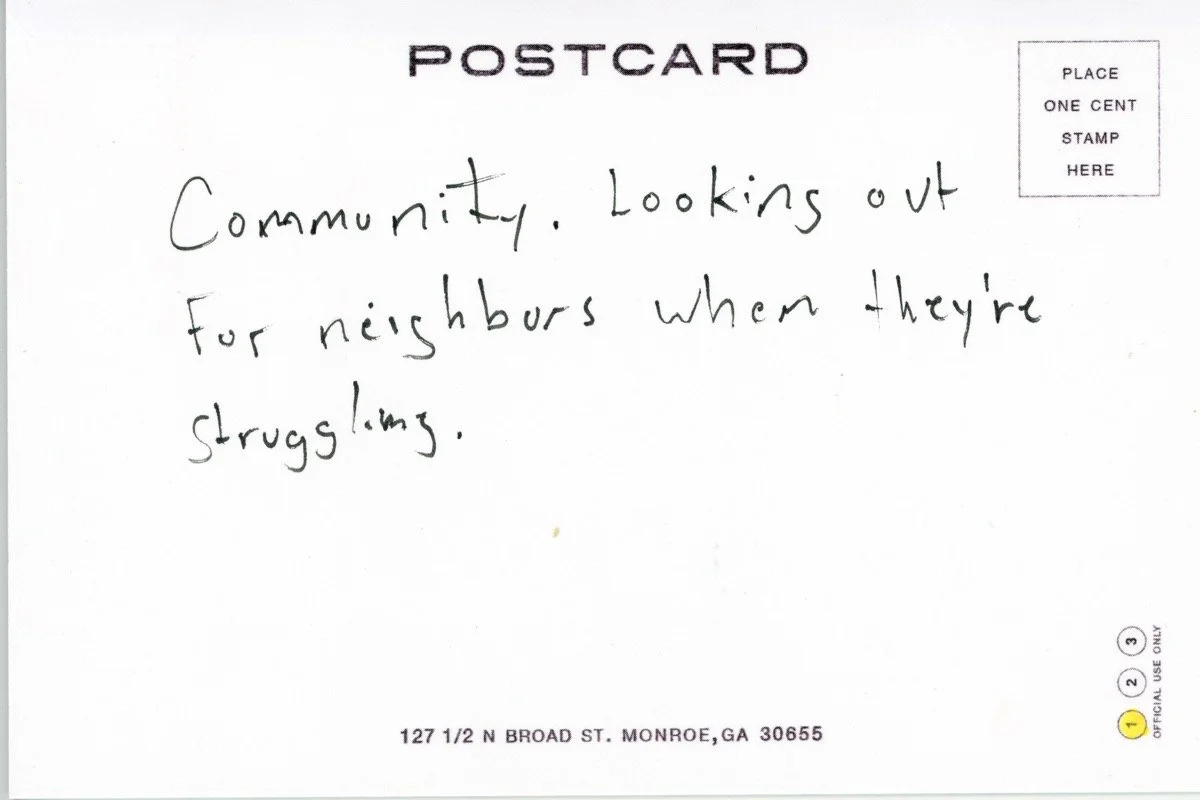 POSTCARD
PLACE
ONE CENT
STAMP
HERE
Community. Looking out
For neighburs when they're
struggling.
127 1/2 N BROAD ST. MONROE, GA 30655
1 2 3
OFFICIAL USE ONLY